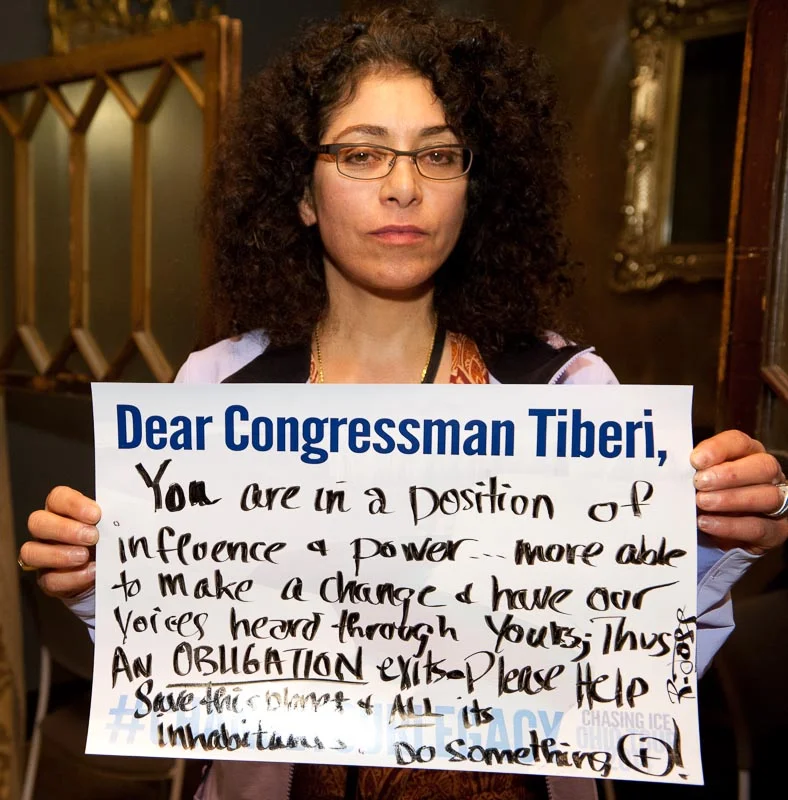 Dear Congressman Tiberi,
You are in a position of
influence & power... more able
to make a change & have our
Voices heard through Yours; Thus
AN OBLIGATION exits. Please Help
Save this planet & ALL its
inhabitants. Do Something (+)!
CHASING ICE